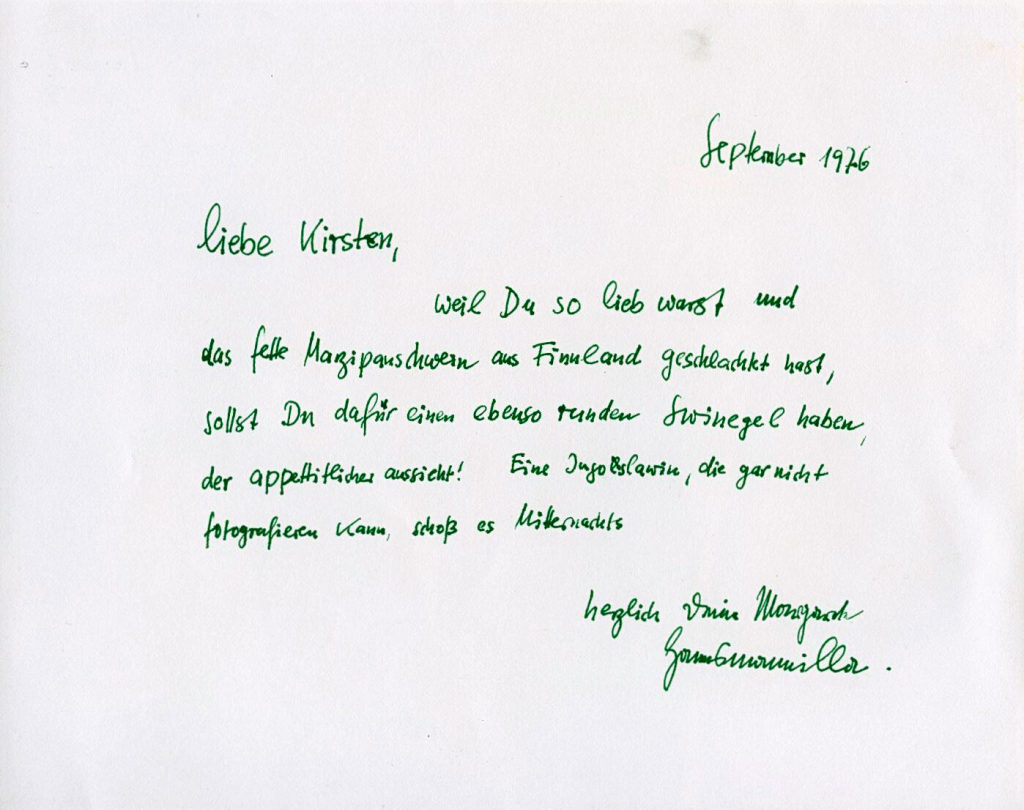 September 1976
liebe Kirsten,
weil Du so lieb warst und
das fette Marzipanschwein aus Finnland geschlachtet hast,
sollst Du dafür einen ebenso runden Swinegel haben,
der appettitlicher aussieht! Eine Jugoslawin, die gar nicht
fotografieren kann, schoß es Mitternachts
herzlich Deine